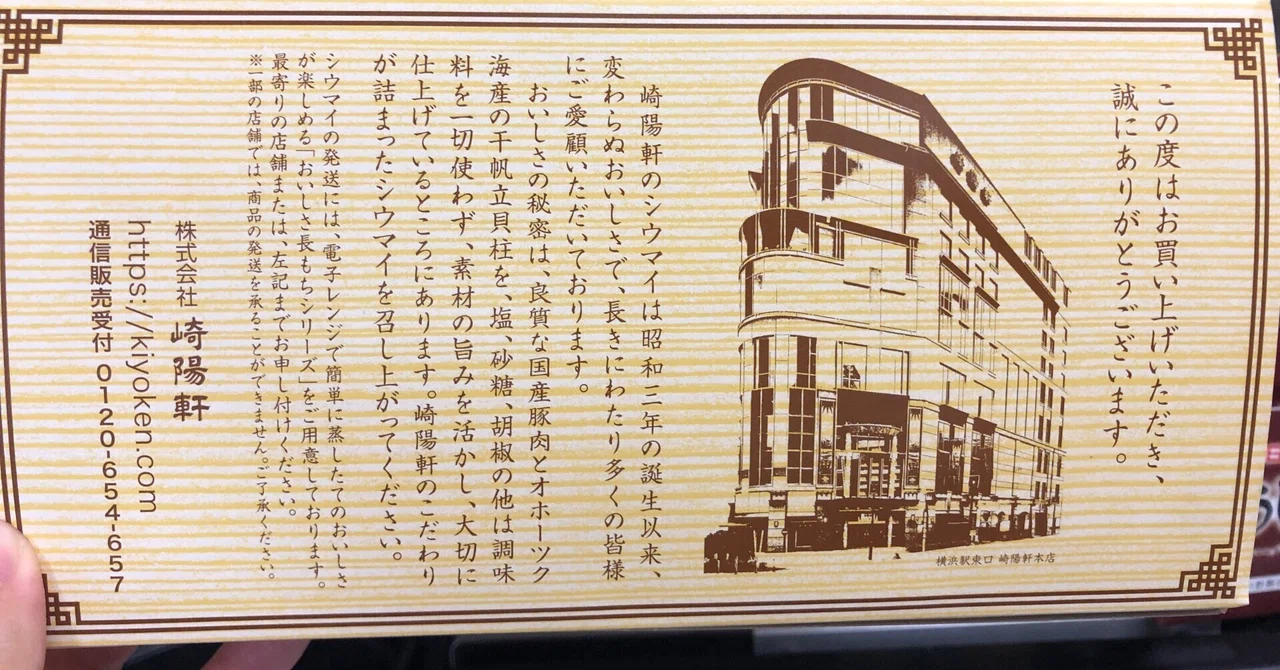 この度はお買い上げいただき、
誠にありがとうございます。
横浜駅東口 崎陽軒本店
崎陽軒のシウマイは昭和三年の誕生以来、
変わらぬおいしさで、長きにわたり多くの皆様
にご愛顧いただいております。
おいしさの秘密は、良質な国産豚肉とオホーツク
海産の干帆立貝柱を、塩、砂糖、胡椒の他は調味
料を一切使わず、素材の旨みを活かし、大切に
仕上げているところにあります。崎陽軒のこだわり
が詰まったシウマイを召し上がってください。
シウマイの発送には、電子レンジで簡単に蒸したてのおいしさ
が楽しめる「おいしさ長もちシリーズ」をご用意しております。
最寄りの店舗または、左記までお申し付けください。
※一部の店舗では、商品の発送を承ることができません。ご了承ください。
株式会社 崎陽軒
https://kiyoken.com
通信販売受付 0120-654-657